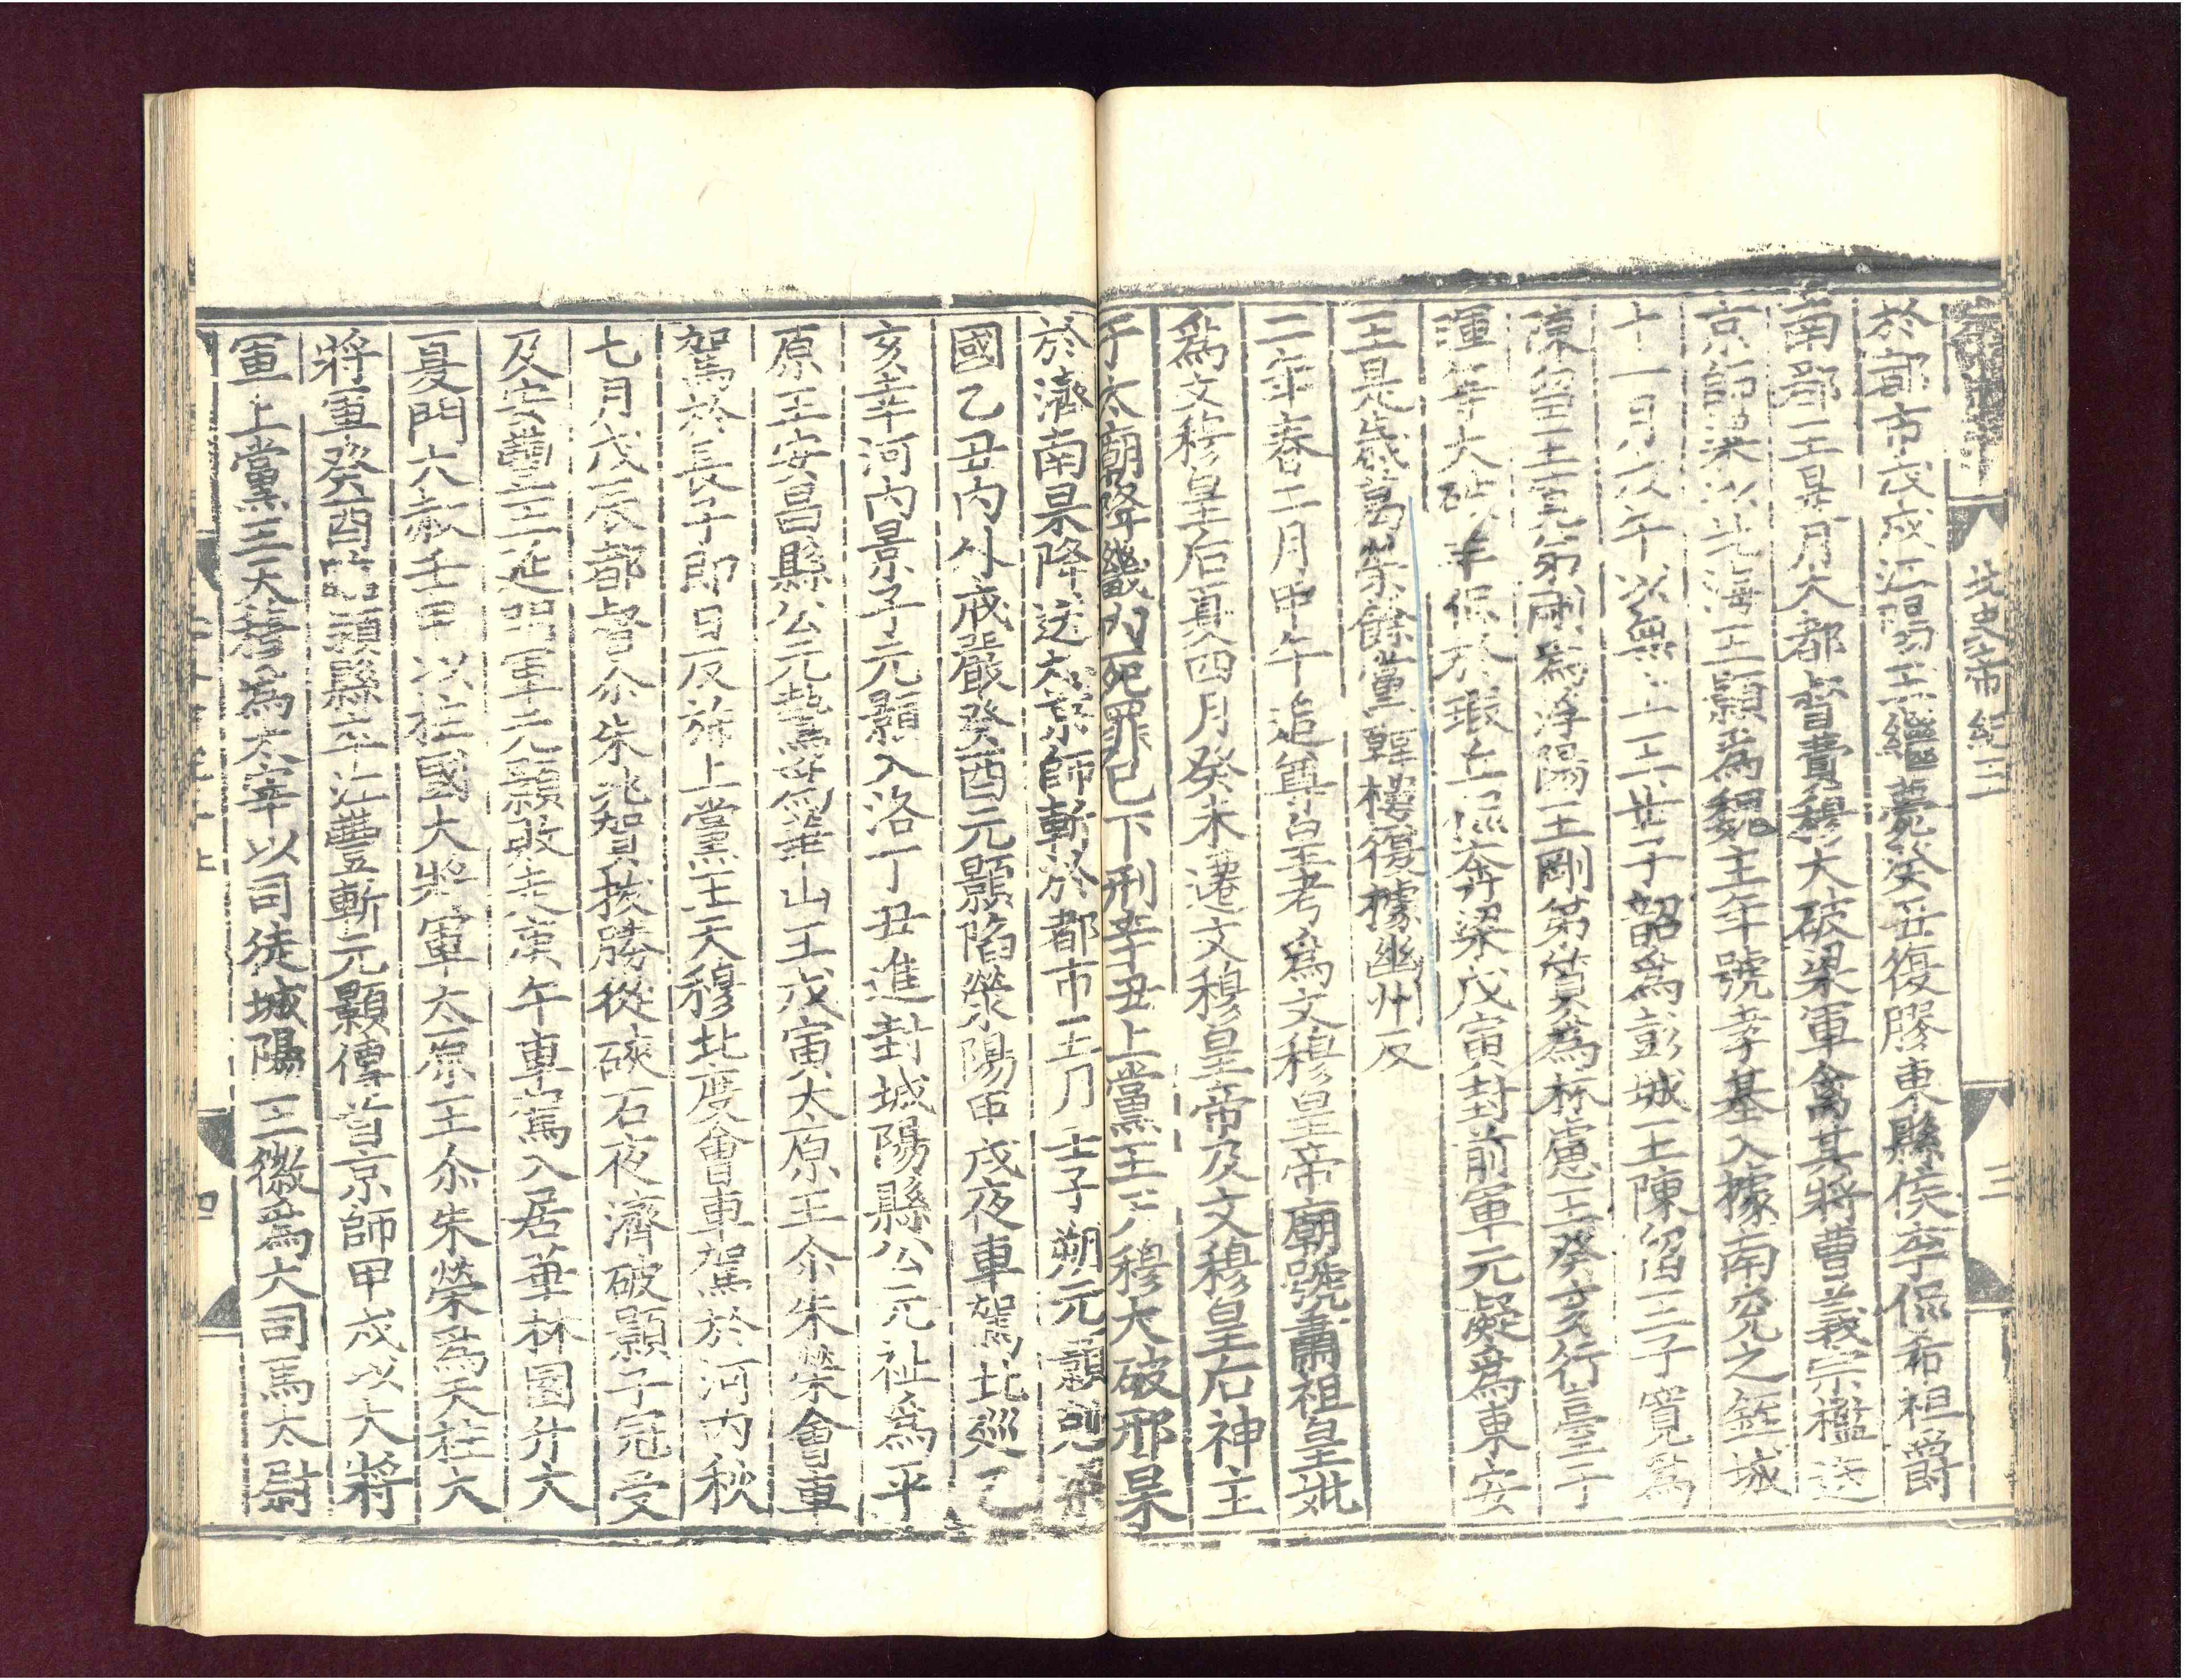 北史帝紀三
三
於都市戊戌江陽王繼薨癸丑復膠東縣侯李侃希祖爵
南郡王是月大都督費穆大破梁軍禽其將曹義宗檻送
京師梁以北海王顥爲魏主年號孝基入據南兗之銍城
十一月戊午以無上王世子韶爲彭城王陳留王子寬爲
陳留王寬弟剛爲浮陽王剛弟質爲林慮王癸亥行臺于
渾等大破羊侃於瑕丘侃奔梁戊寅封前軍元凝爲東安
王是歲葛榮餘黨韓樓復據幽州反
二年春二月甲午追尊皇考爲文穆皇帝廟號肅祖皇妣
爲文穆皇后夏四月癸未遷文穆皇帝及文穆皇后神主
于太廟降畿內死罪已下刑辛丑上黨王天穆大破邢杲
於濟南杲降送京師斬於都市五月壬子朔元顥剋梁
國乙丑內外戒嚴癸酉元顥陷滎陽甲戌夜車駕北巡乙
亥幸河內景子元顥入洛丁丑進封城陽縣公元祉爲平
原王安昌縣公元鷙爲華山王戊寅太原王尒朱榮會車
駕於長子即日反旆上黨王天穆北度會車駕於河內秋
七月戊辰都督尒朱兆賀拔勝從硤石夜濟破顥子冠受
及安豐王延明軍元顥敗走庚午車駕入居華林園升大
夏門大赦壬申以柱國大將軍太原王尒朱榮爲天柱大
將軍癸酉臨潁縣卒江豐斬元顥傳首京師甲戌以大將
軍上黨王天穆爲太宰以司徒城陽王徽爲大司馬太尉
四